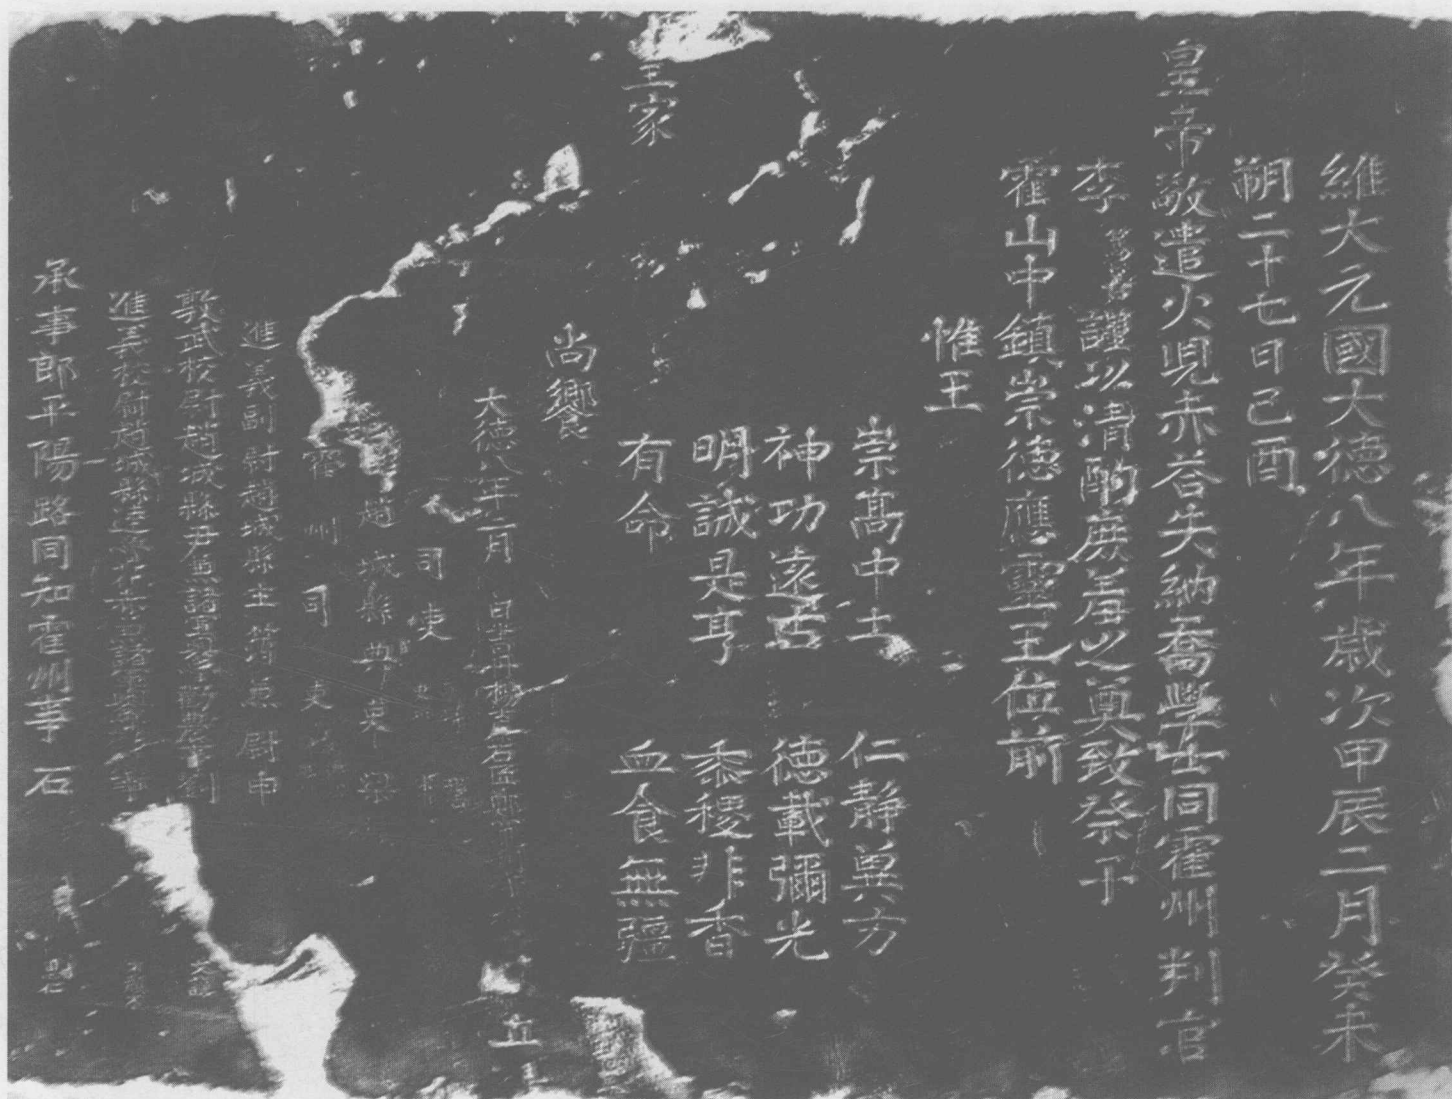 維大元國大德八年歲次甲辰二月癸未
朔二十七日己酉
皇帝敬遣火児赤荅失納喬學士同霍州判官
李謹以清酌庶羞之奠致祭于
霍山中鎮崇德應靈王位前
惟王
崇髙中土 仁静奠方
神功遠古 德載彌光
明誠是享 黍稷非香
有命 王家 血食無疆
尚饗
大德八年二月 日 立石
司吏
趙城縣典吏 梁
霍州司吏
進義副尉趙城縣主簿兼尉申
敦武校尉趙城縣尹兼諸軍奧魯勸農事劉
進義校尉趙城縣達魯花赤兼諸軍奧魯
承事郎平陽路同知霍州事石